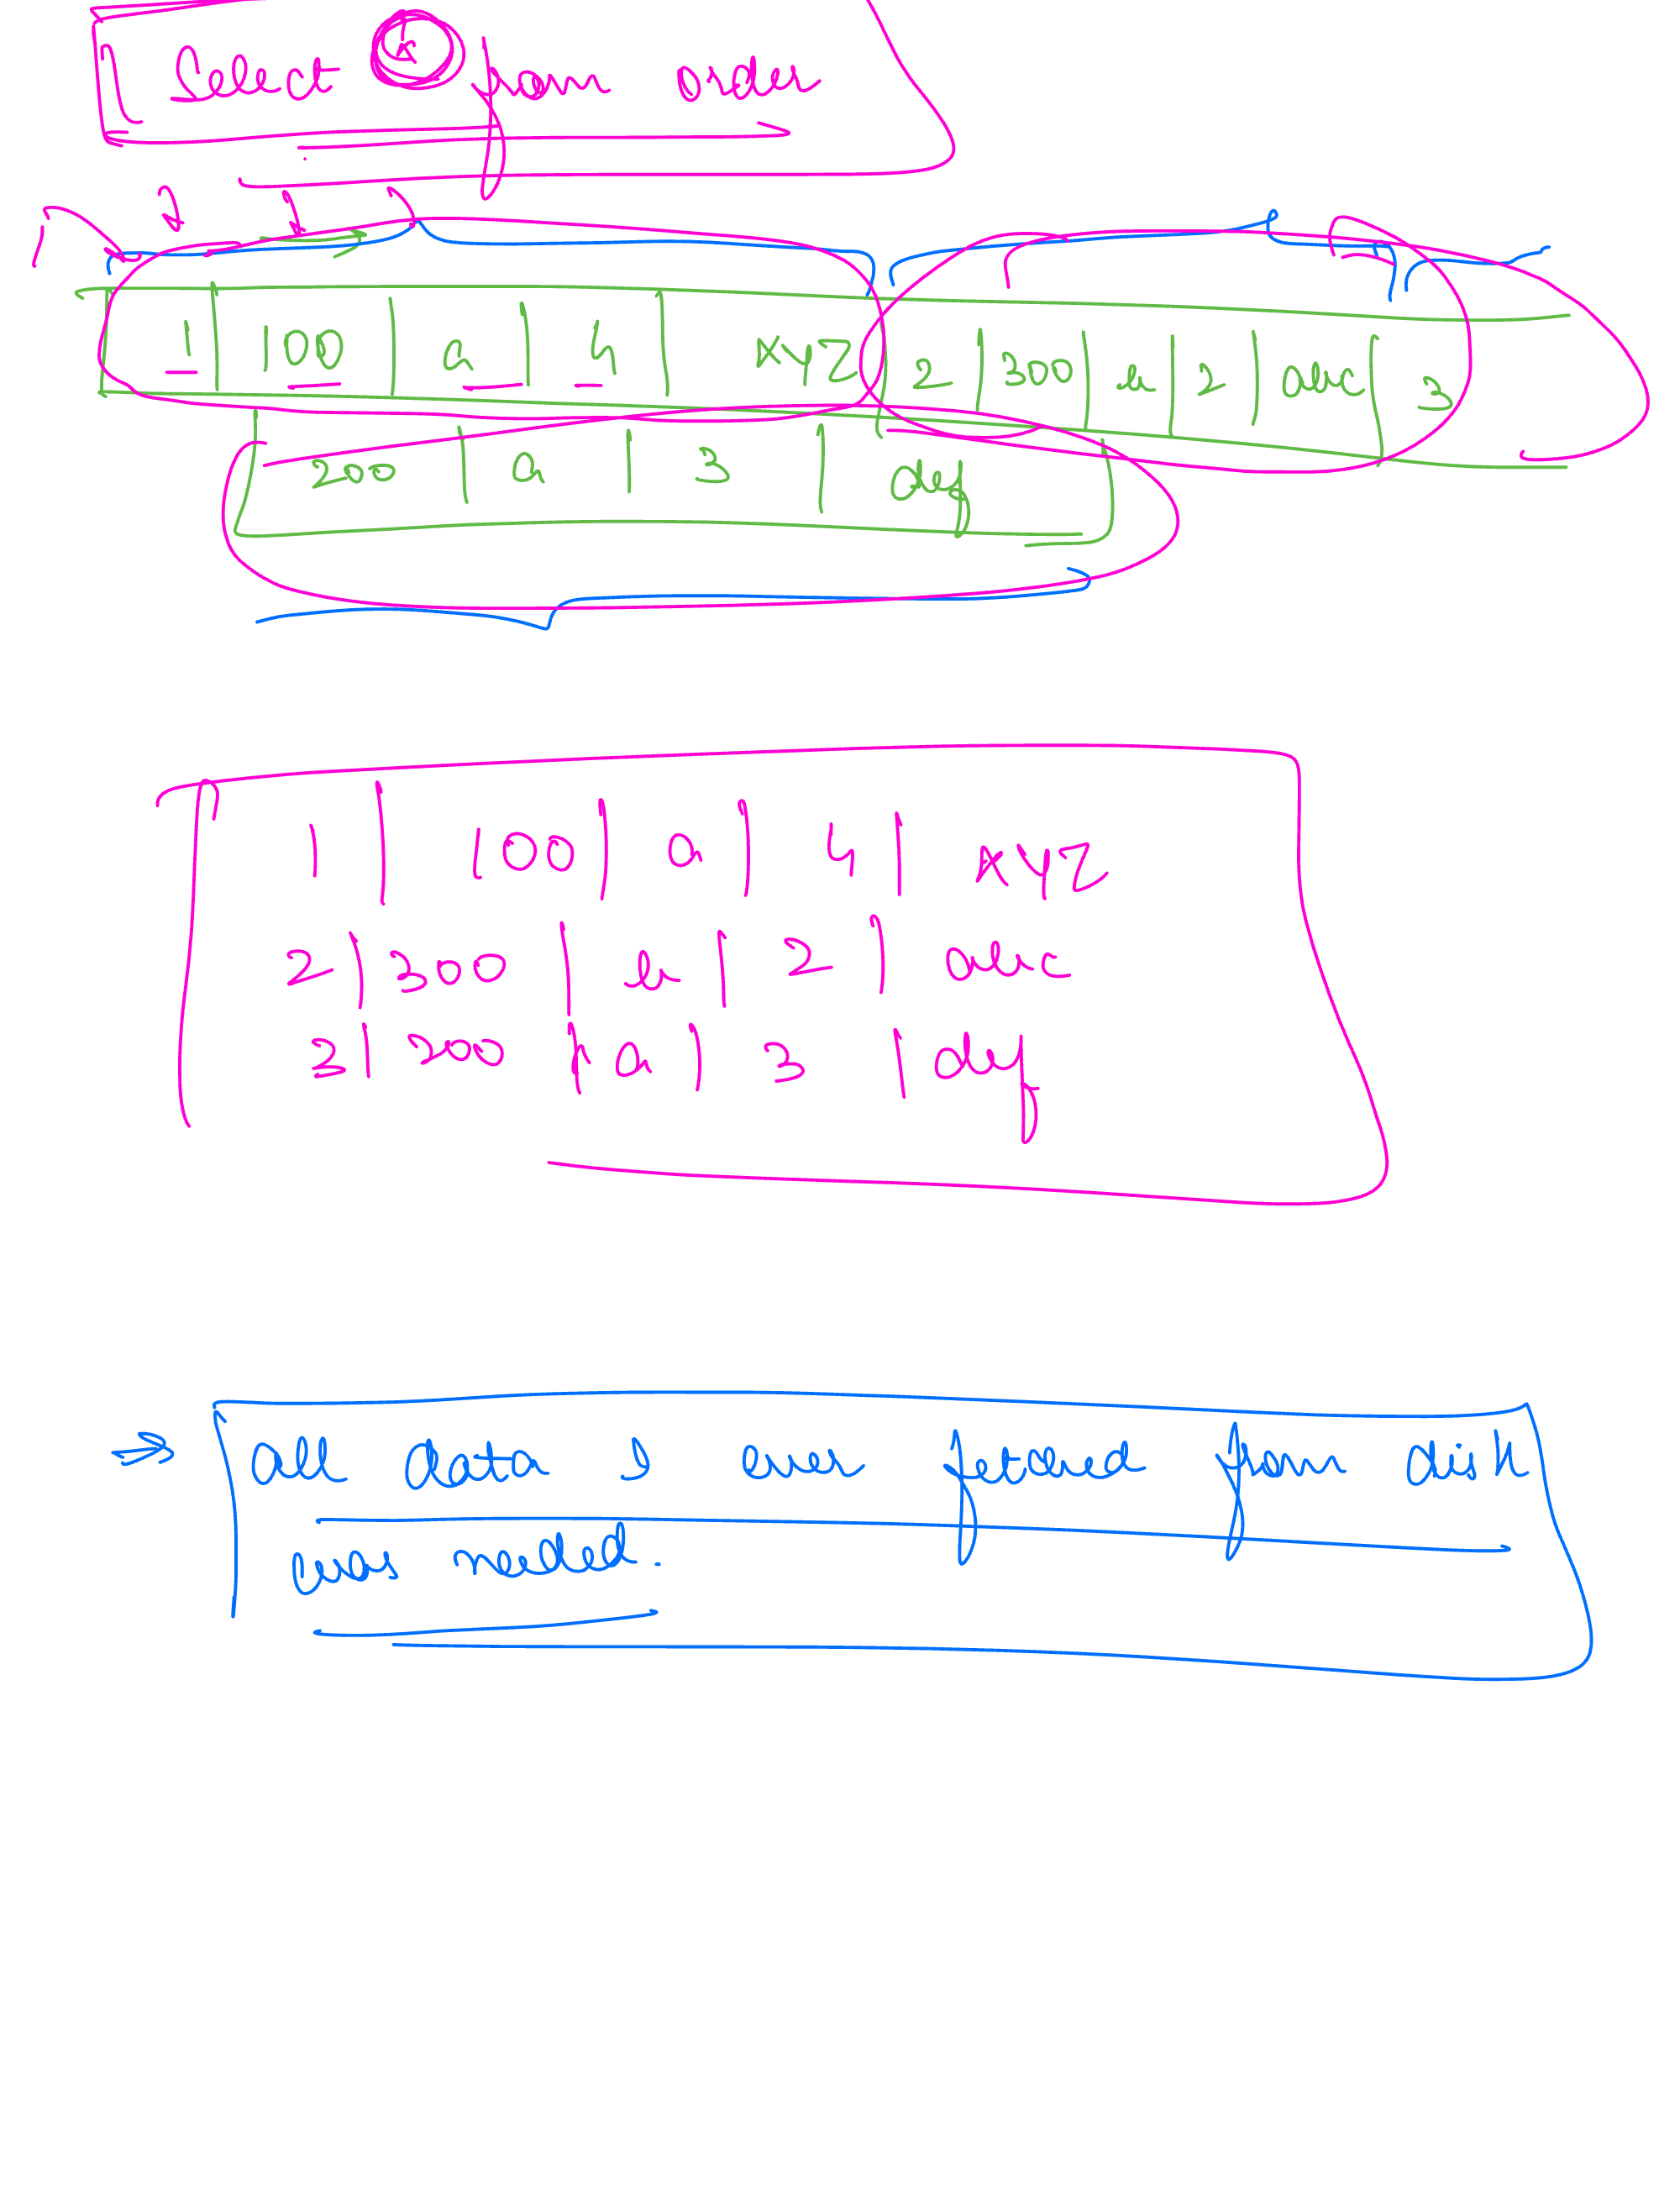 Select * from order
1 | 100 | a | 4 | xyz | 2 | 300 | b | 2 | abc | 3
200 | a | 3 | def
1 | 100 | a | 4 | xyz
2 | 300 | b | 2 | abc
3 | 200 | a | 3 | def
⇒ all data I ever fetched from disk
was needed.